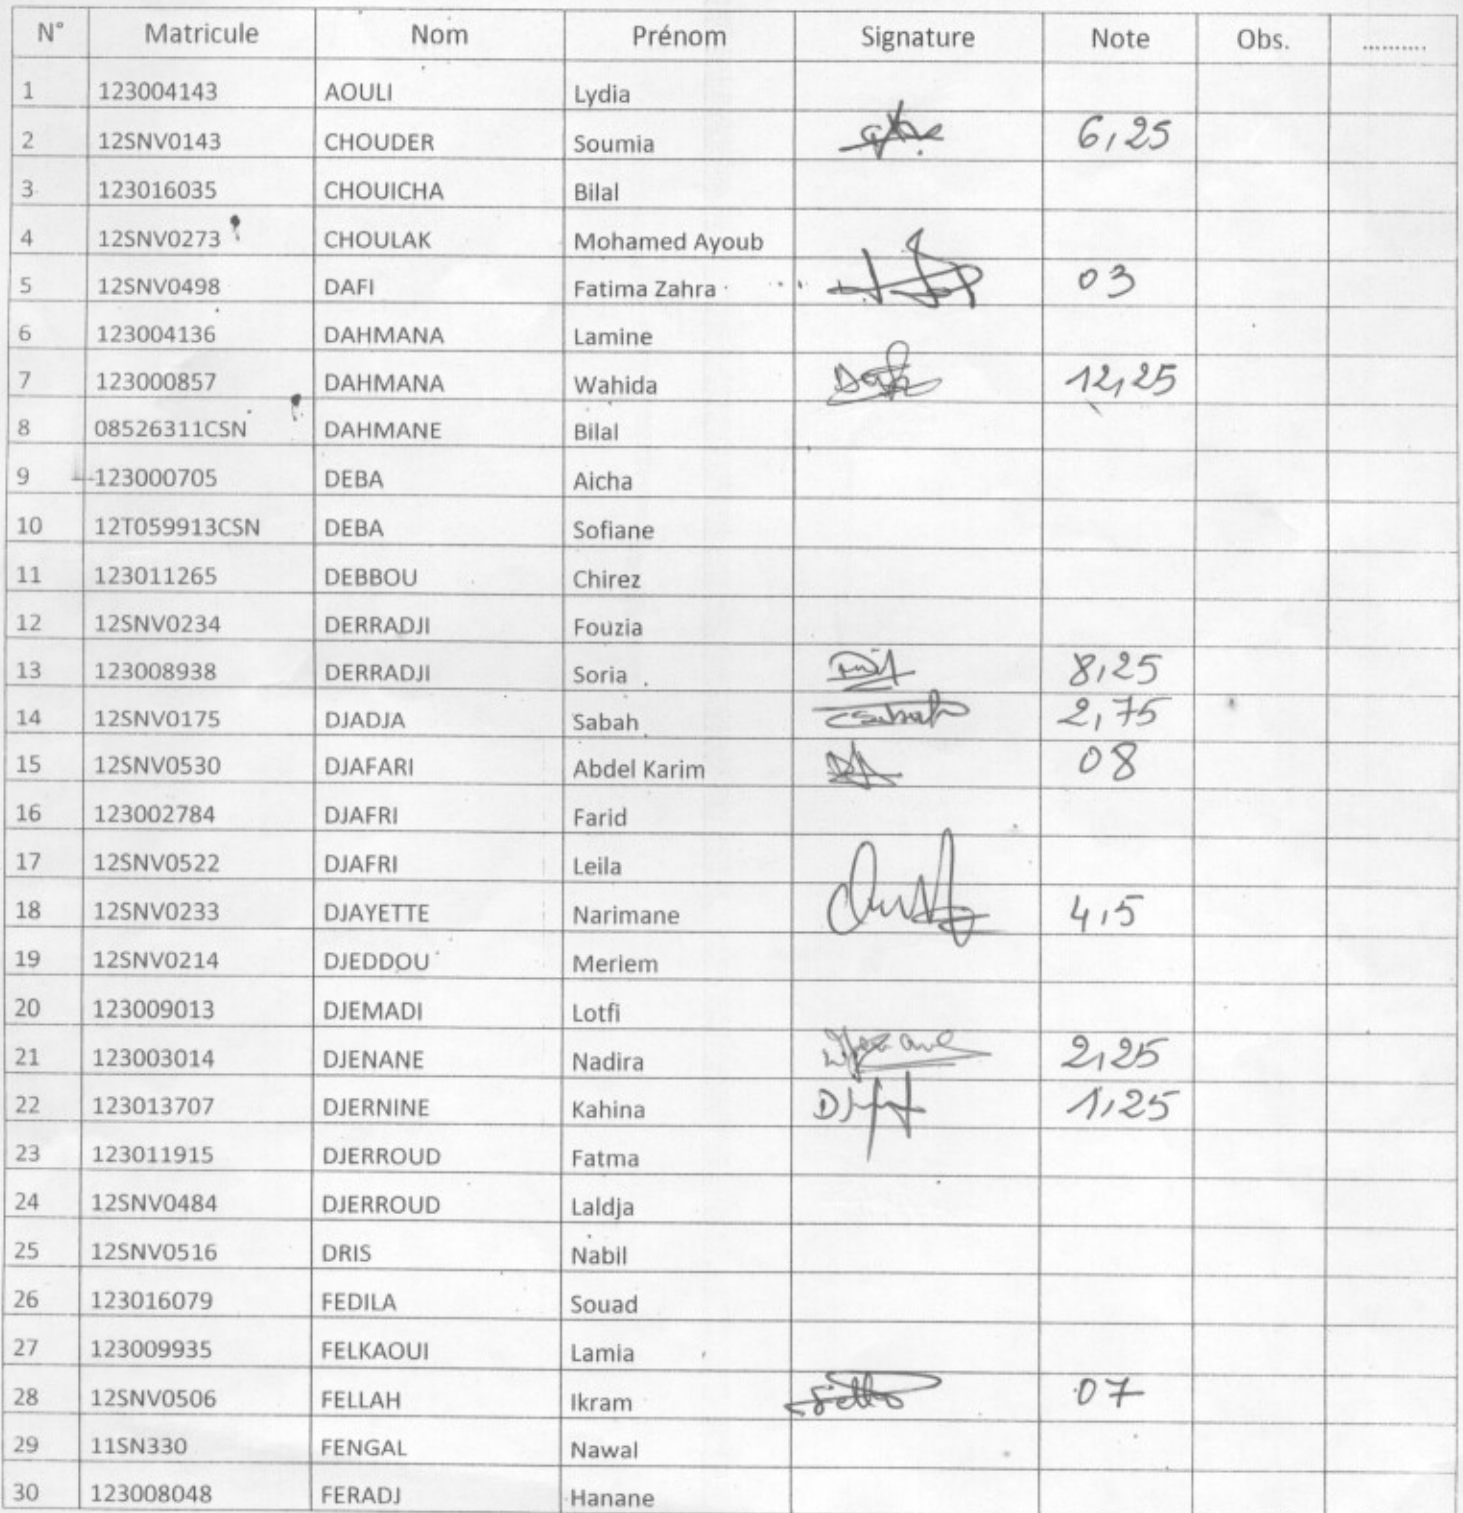 N° Matricule Nom Prénom Signature Note Obs. ..........
1 123004143 AOULI Lydia
2 12SNV0143 CHOUDER Soumia 6,25
3 123016035 CHOUICHA Bilal
4 12SNV0273 CHOULAK Mohamed Ayoub
5 12SNV0498 DAFI Fatima Zahra 03
6 123004136 DAHMANA Lamine
7 123000857 DAHMANA Wahida 12,25
8 08526311CSN DAHMANE Bilal
9 123000705 DEBA Aicha
10 12T059913CSN DEBA Sofiane
11 123011265 DEBBOU Chirez
12 12SNV0234 DERRADJI Fouzia
13 123008938 DERRADJI Soria 8,25
14 12SNV0175 DJADJA Sabah 2,75
15 12SNV0530 DJAFARI Abdel Karim 08
16 123002784 DJAFRI Farid
17 12SNV0522 DJAFRI Leila
18 12SNV0233 DJAYETTE Narimane 4,5
19 12SNV0214 DJEDDOU Meriem
20 123009013 DJEMADI Lotfi
21 123003014 DJENANE Nadira 2,25
22 123013707 DJERNINE Kahina 1,25
23 123011915 DJERROUD Fatma
24 12SNV0484 DJERROUD Laldja
25 12SNV0516 DRIS Nabil
26 123016079 FEDILA Souad
27 123009935 FELKAOUI Lamia
28 12SNV0506 FELLAH Ikram 07
29 11SN330 FENGAL Nawal
30 123008048 FERADJ Hanane